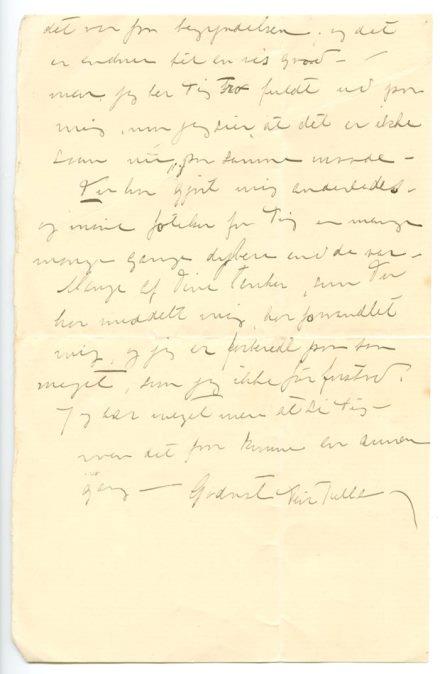 det var fra begyndelsen, og det
er endnu til en vis grad –
men jeg ber Dig tro fuldt ud paa
mig, naar jeg sier, at det er ikke
saan nu, paa samme maade –
Du har gjort mig anderledes –
og mine følelser for Dig er mange
mange gange dybere end de var –
Mange af Dine tanker, som Du
har meddelt mig, har forvandlet
mig, og jeg er forberedt paa saa
meget, som jeg ikke før forstod.
Jeg har meget mere at si Dig –
men det faar komme en annen
gang – Godnat Din Tulla